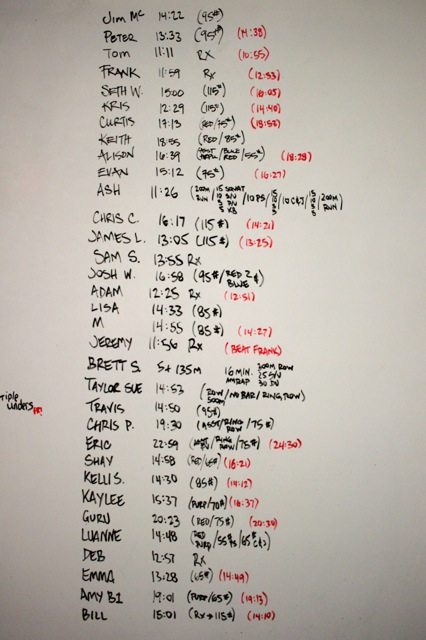 Jim Mc 14:22 (95#)
PETER 13:33 (95#) (14:38)
Tom 11:11 RX (10:55)
FRANK 11:59 Rx (12:33)
SETH W. 1500 (115#) (16:05)
KRIS 12:29 (115#) (14:40)
CURTIS 17:13 (RED/75#) (18:52)
KEITH 18:55 (RED/85#)
ALISON 16:39 (BLUE RED/55#) (18:28)
EVAN 15:12 (75#) (16:27)
ASH 11:26 (200m RUN/15 SQUAT 10 S/U 5 P/U 5 KB/10 PS/15 10 5 5/10 C&J/15 10 5 5/200m RUN)
CHRIS C. 16:17 (115#) (14:21)
JAMES L. 13:05 (115#) (13:25)
SAM S. 13:55 Rx
JOSH W. 16:58 (95#/RED 2 BLUE)
ADAM 12:25 Rx (12:51)
LISA 14:33 (85#)
M 14:55 (85#) (14:27)
JEREMY 11:56 Rx (BEAT FRANK)
BRETT S. 5+ 135m 16 MIN. AMRAP 300m ROW 25 S/U
TAYLOR SUE 14:53 (ROW 500m/NO BAR/RING ROW)
TRIPLE UNDERS PR!
TRAVIS 14:50 (95#)
CHRIS P. 19:30 (ASST/RING ROW/75#)
ERIC 22:59 (RING ROW/75#) (24:30)
SHAY 14:58 (RED/65#) (16:21)
KELLI S. 14:30 (85#) (14:12)
KAYLEE 15:37 (PURP/70#) (16:37)
GURU 20:23 (RED/75#) (20:30)
LUANNE 14:48 (RED PURP/55# PS/65# C&J)
DEB 12:57 RX
EMMA 13:28 (65#) (14:49)
AMY B1 19:01 (PURP/65#) (19:13)
BILL 15:01 (Rx→115#) (14:10)